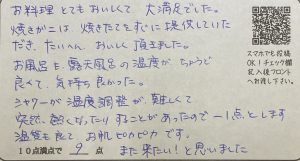 お料理とてもおいしくて大満足でした。
焼きガニは、焼きたてをすぐに提供していた
だき、たいへん、おいしく頂きました。
お風呂も露天風呂の温度が、ちょうど
良くて、気持ち良かった。
シャワーが温度調整が難しくて
突然、熱くなったりすることがあったので一1点とします
温質も良くて、お肌ピカピカです。
10点満点で 9 点 また来たい!と思いました
スマホでも投稿
OK!チェック欄
記入後フロント
へお渡し下さい。